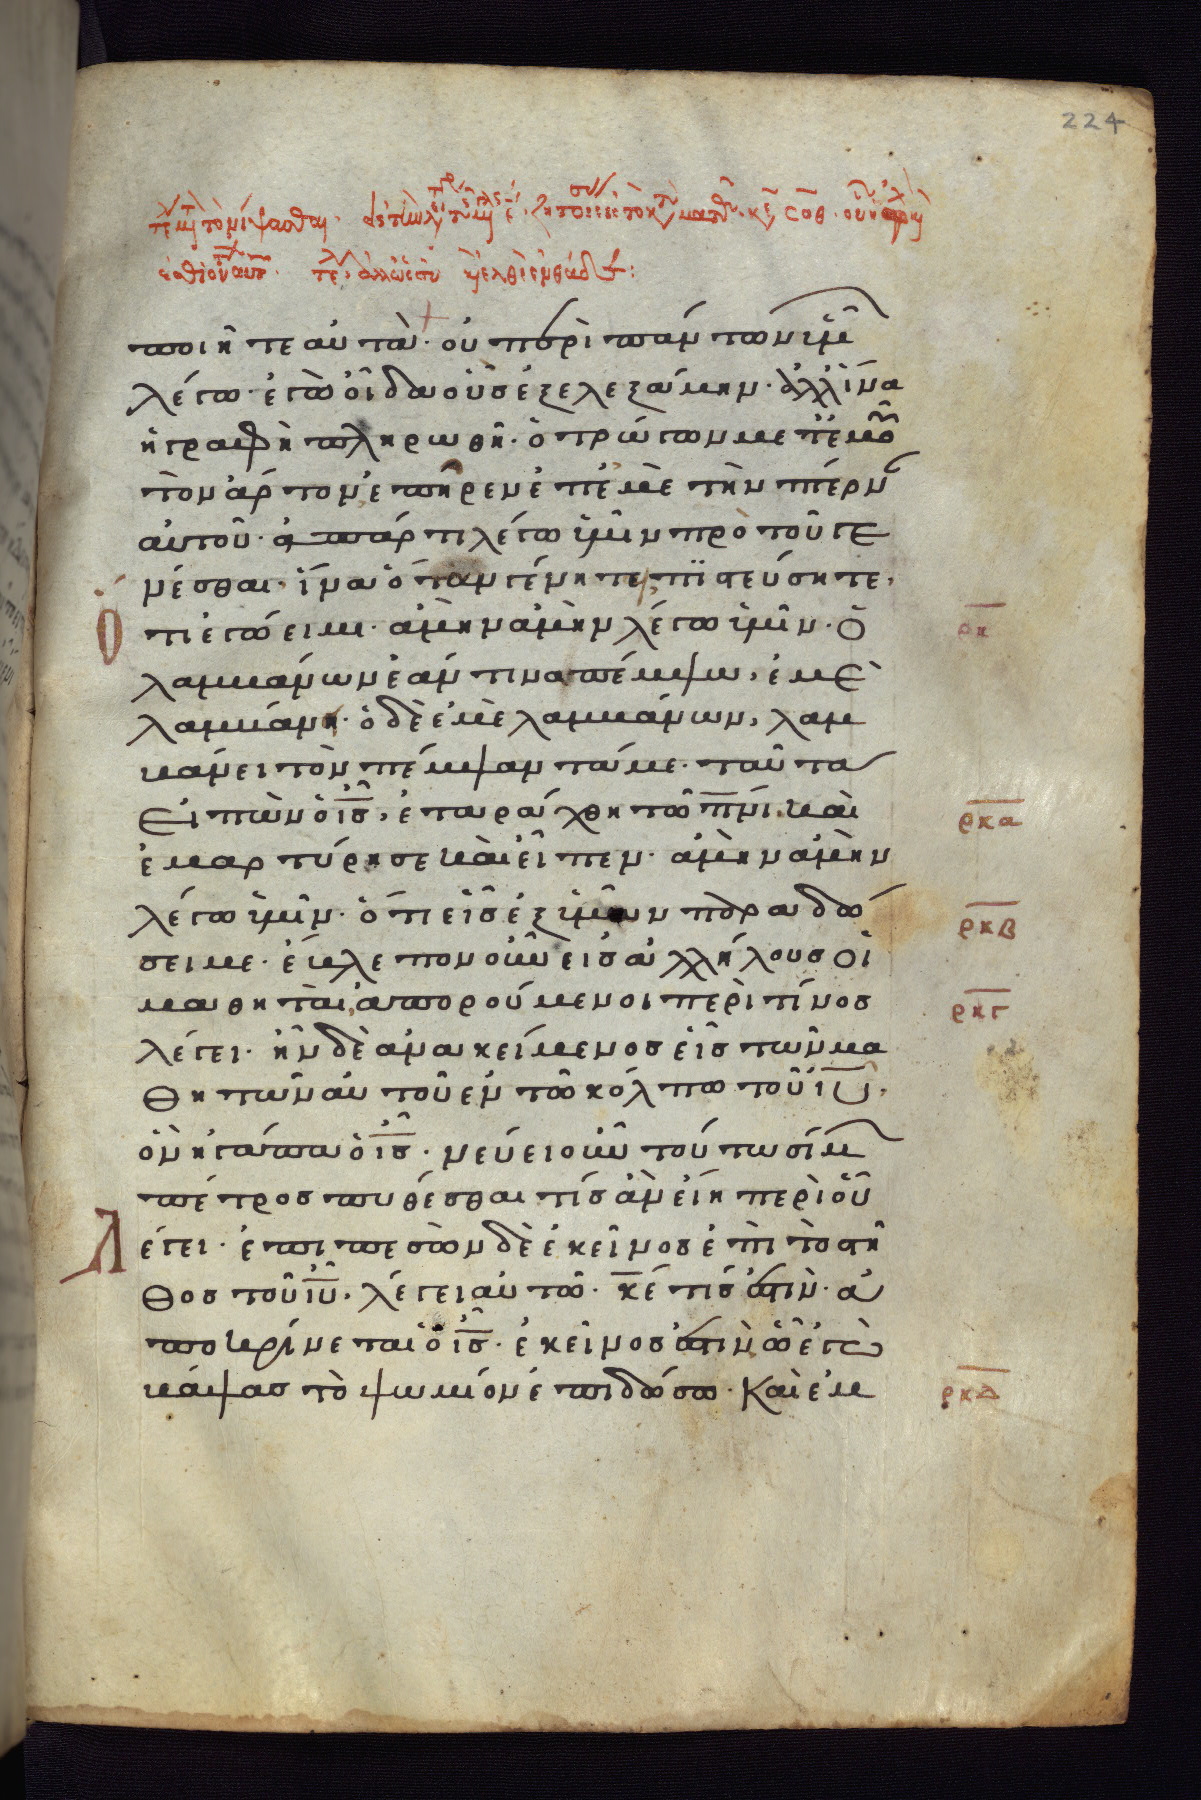 224
ποιῆτε αὐτὰ· οὐ περὶ πάντων ὑμῶ
λέγω· ἐγὼ οἶδα οὓς ἐξελεξάμην· ἀλλ' ἵνα
ἡ γραφὴ πληρωθῆ· ὁ τρώγων μετ' ἐμοῦ
τὸν ἄρτον, ἐπῆρεν ἐπ' ἐμὲ τὴν πτέρναν
αὐτοῦ· ἀπάρτι λέγω ὑμῖν πρὸ τοῦ γε
νέσθαι· ἵνα ὅταν γένηται, πιστεύσητε,
ὅτι ἐγώ εἰμι· ἀμὴν ἀμὴν λέγω ὑμῖν· ὁ
ρκ
λαμβάνων ἐάν τινα πέμψω, ἐμὲ
λαμβάνει· ὁ δὲ ἐμὲ λαμβάνων, λαμ
βάνει τὸν πέμψαντά με· ταῦτα
εἰπὼν ὁ ις, ἐταράχθη τῶ πνι καὶ
ρκα
ἐμαρτύρησε καὶ εἶπεν· ἀμὴν ἀμὴν
λέγω ὑμῖν· ὅτι εἷς ἐξ ὑμῶν παραδώ
ρκβ
σει με· ἔβλεπον οὖν εἰς ἀλλήλους οἱ
μαθηταὶ, ἀπορούμενοι περὶ τίνος
ρκγ
λέγει· ἦν δὲ ἀνακείμενος εἷς τῶν μα
θητῶν αὐτοῦ ἐν τῶ κόλπω τοῦ ιυ,
ὃν ἠγάπα ὁ ις· νεύει οὖν τούτω σίμ
πέτρος πυθέσθαι τίς ἂν εἴη περὶ οὗ
λέγει· ἐπιπεσὼν δὲ ἐκεῖνος ἐπὶ τὸ στῆ
θος τοῦ ιυ, λέγει αὐτῶ· κε τίς ἐστιν· ἀ
ποκρίνεται ὁ ις· ἐκεῖνός ἐστιν ὧ ἐγὼ
βάψας τὸ ψωμίον ἐπιδώσω· Καὶ ἐμ
ρκδ